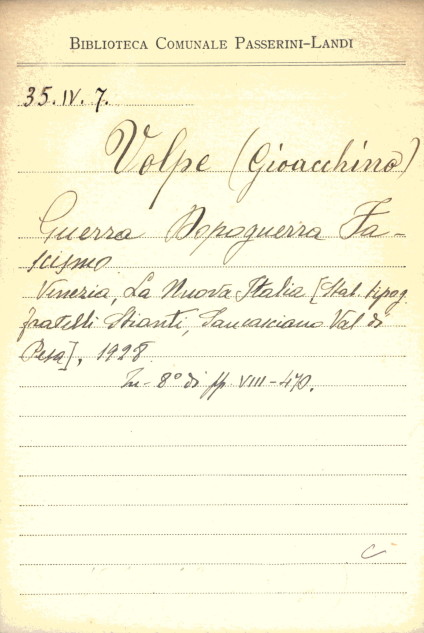 BIBLIOTECA COMUNALE PASSERINI-LANDI
35. IV. 7.
Volpe (Gioacchino)
Guerra Dopoguerra Fa-
scismo
Venezia, La Nuova Italia [Stab. tipog.
fratelli Stianti, Sancasciano Val di
Pesa], 1928
In-8° di pp. VIII-470.
C